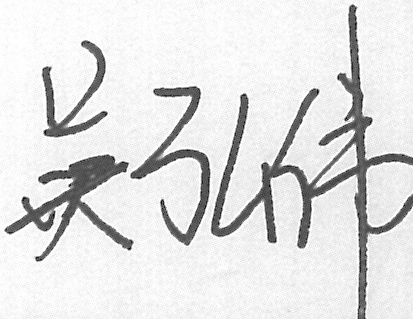 吴弘伟